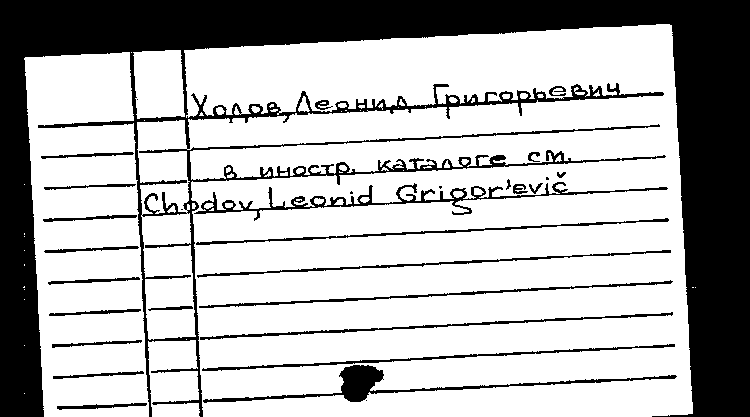 Ходов, Леонид Григорьевич
в иностр. каталоге см.
Chodov, Leonid Grigor'evič